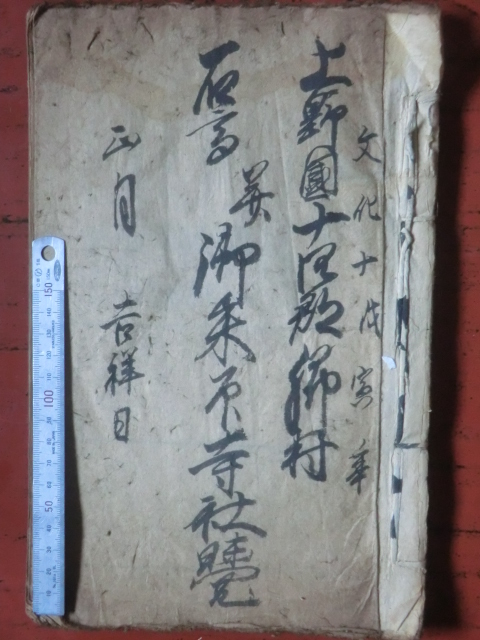 文化十戊寅年
上野國十四郡郷村
石高
并
御朱印寺社
正月 吉祥日
50
100
150